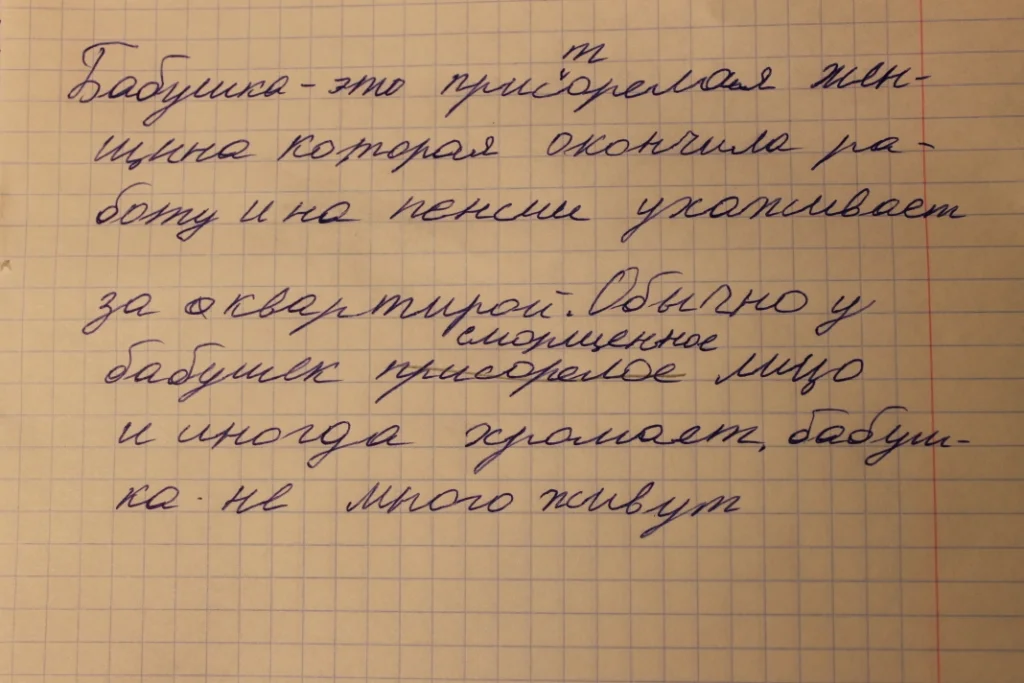 Бабушка - это присторелоая жен-
щина которая окончила ра-
боту и на пенсии ухаживает
за квартирой. Обычно у
сморщенное
бабушек присорелое лицо
и иногда хромает, бабуш-
ка не много живут